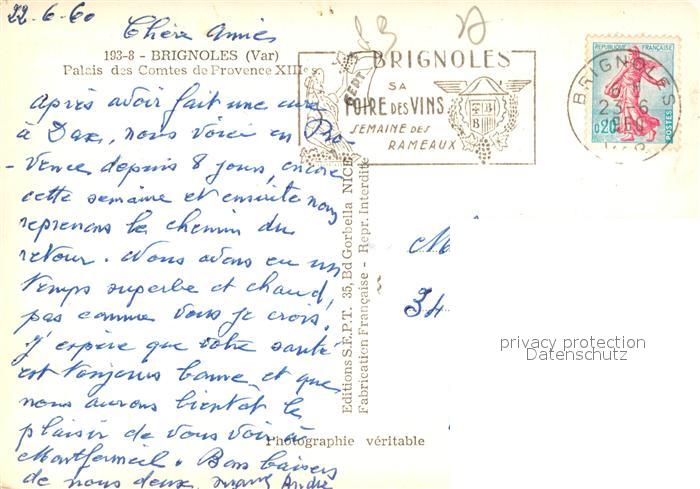 22-6-60
Chère Amies
193-8 - BRIGNOLES (Var)
Palais des Comtes de Provence XIIIe s.
Après avoir fait une cure
à Dax, nous voici en Pro-
-vence depuis 8 jours, encore
cette semaine et ensuite nous
reprenons le chemin du
retour. Nous avons eu un
temps superbe et chaud,
pas comme vous je crois.
J'espère que votre santé
est toujours bonne et que
nous aurons bientôt le
plaisir de vous voir à
Montfermeil. Bons baisers
de nous deux. André
BRIGNOLES
SA
FOIRE DES VINS
SEMAINE DES
RAMEAUX
SEPT
BRIGNOLES
23-6
1960
REPUBLIQUE FRANÇAISE
0,20
POSTES
Editions S.E.P.T. 35, Bd Gorbella NICE
Fabrication Française - Repr. Interdite
Photographie véritable
M
34
privacy protection
Datenschutz